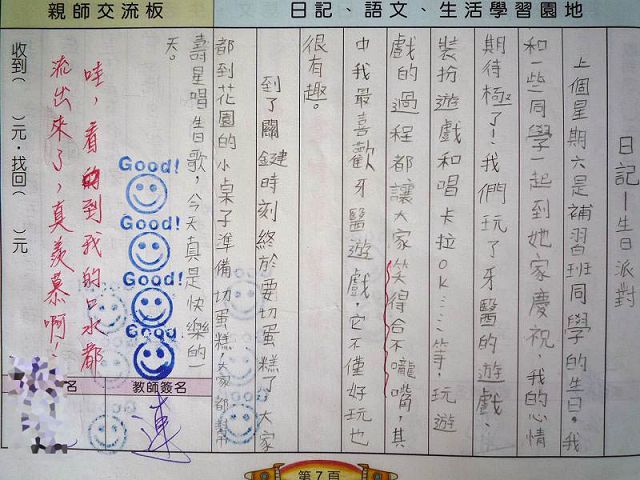 日記、語文、生活學習園地
親師交流板
日記—生日派對
上個星期六是補習班同學的生日。我
和一些同學一起到她家慶祝，我的心情
期待極了！我們玩了牙醫的遊戲、
裝扮遊戲和唱卡拉OK……等。玩遊
戲的過程都讓大家笑得合不嚨嘴，其
中我最喜歡牙醫遊戲，它不僅好玩也
很有趣。
到了關鍵時刻終於要切蛋糕了，大家
都到花園的小桌子準備切蛋糕，大家都幫
壽星唱生日歌，今天真是快樂的一
天。
Good!
Good!
Good!
Good
哇，看到我的口水都
流出來了，真羨慕啊！
教師簽名
連
名
收到（ ）元，找回（ ）元
第7頁